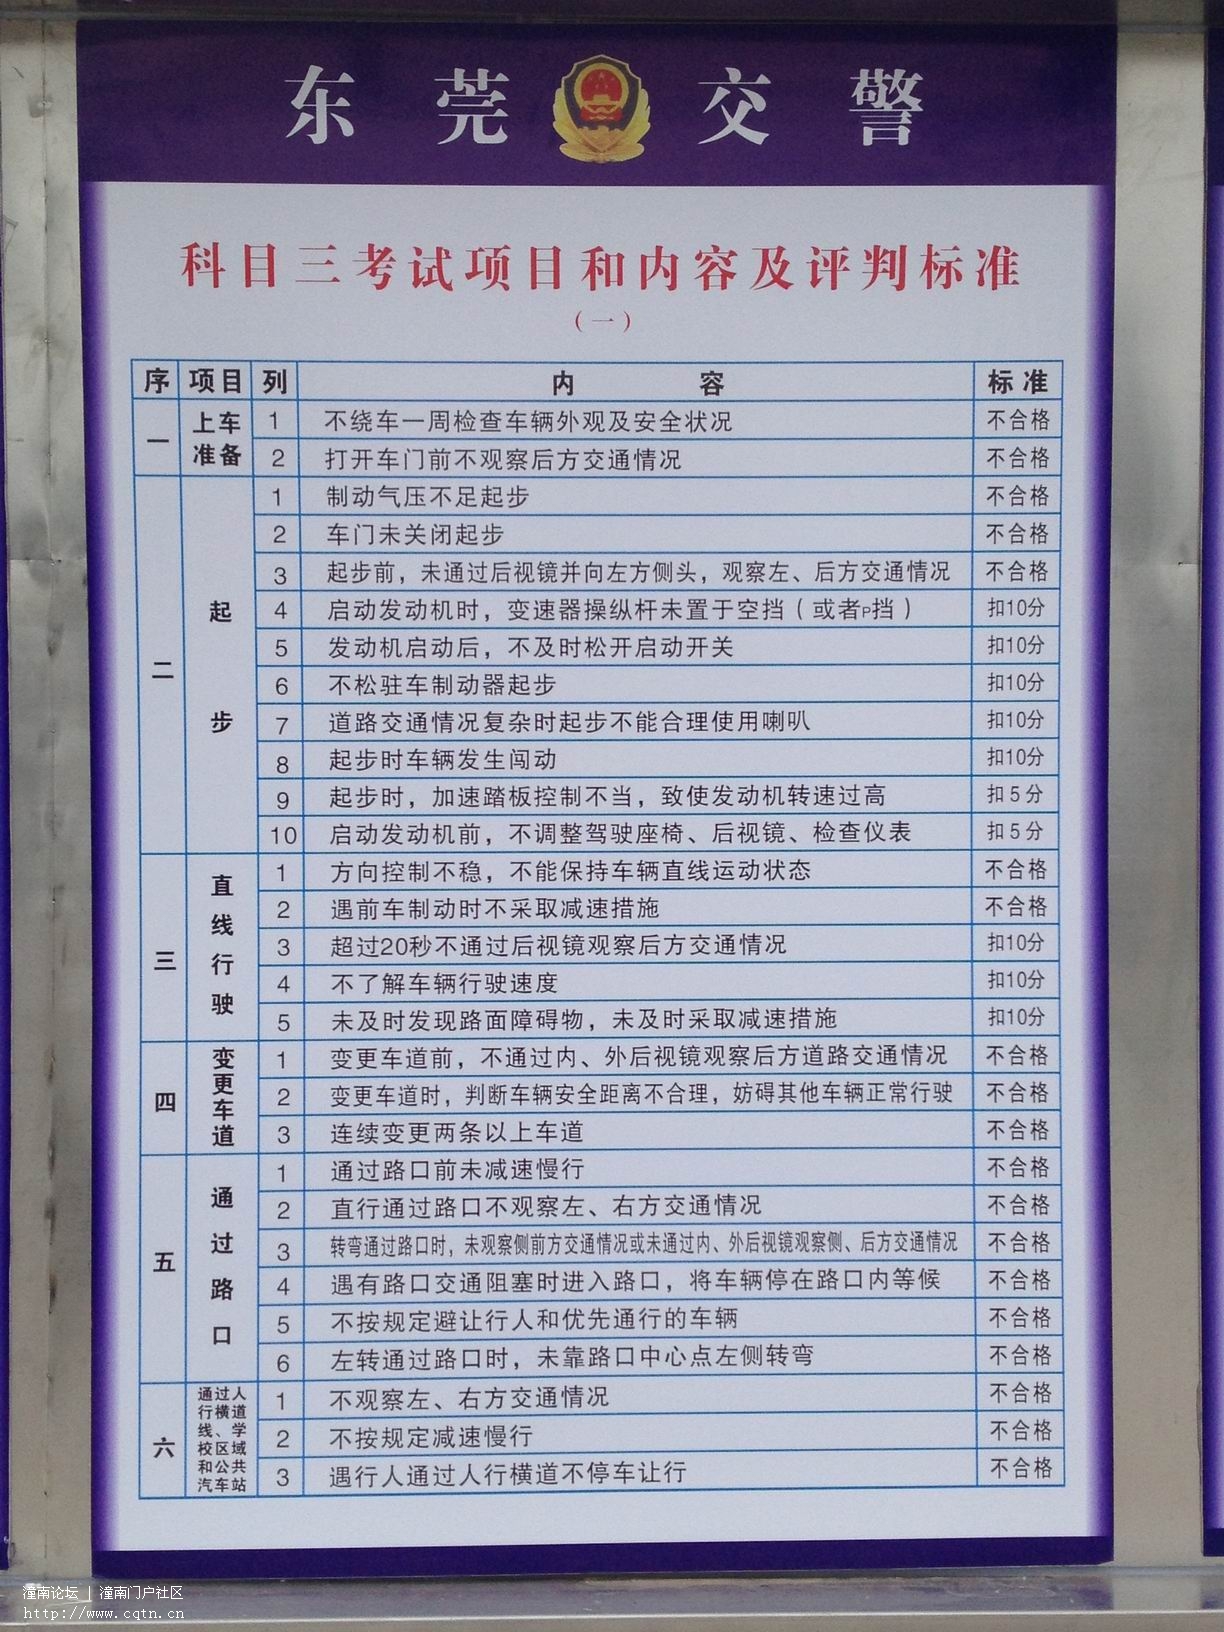 东莞交警
科目三考试项目和内容及评判标准
(一)
序 项目 列 内容 标准
一 上车准备 1 不绕车一周检查车辆外观及安全状况 不合格
2 打开车门前不观察后方交通情况 不合格
二 起步 1 制动气压不足起步 不合格
2 车门未关闭起步 不合格
3 起步前，未通过后视镜并向左方侧头，观察左、后方交通情况 不合格
4 启动发动机时，变速器操纵杆未置于空挡（或者P挡） 扣10分
5 发动机启动后，不及时松开启动开关 扣10分
6 不松驻车制动器起步 扣10分
7 道路交通情况复杂时起步不能合理使用喇叭 扣10分
8 起步时车辆发生闯动 扣10分
9 起步时，加速踏板控制不当，致使发动机转速过高 扣5分
10 启动发动机前，不调整驾驶座椅、后视镜、检查仪表 扣5分
三 直线行驶 1 方向控制不稳，不能保持车辆直线运动状态 不合格
2 遇前车制动时不采取减速措施 不合格
3 超过20秒不通过后视镜观察后方交通情况 扣10分
4 不了解车辆行驶速度 扣10分
5 未及时发现路面障碍物，未及时采取减速措施 扣10分
四 变更车道 1 变更车道前，不通过内、外后视镜观察后方道路交通情况 不合格
2 变更车道时，判断车辆安全距离不合理，妨碍其他车辆正常行驶 不合格
3 连续变更两条以上车道 不合格
五 通过路口 1 通过路口前未减速慢行 不合格
2 直行通过路口不观察左、右方交通情况 不合格
3 转弯通过路口时，未观察侧前方交通情况或未通过内、外后视镜观察侧、后方交通情况 不合格
4 遇有路口交通阻塞时进入路口，将车辆停在路口内等候 不合格
5 不按规定避让行人和优先通行的车辆 不合格
6 左转通过路口时，未靠路口中心点左侧转弯 不合格
六 通过人行横道线、学校区域和公共汽车站 1 不观察左、右方交通情况 不合格
2 不按规定减速慢行 不合格
3 遇行人通过人行横道不停车让行 不合格
潼南论坛 | 潼南门户社区
http://www.cqtn.cn